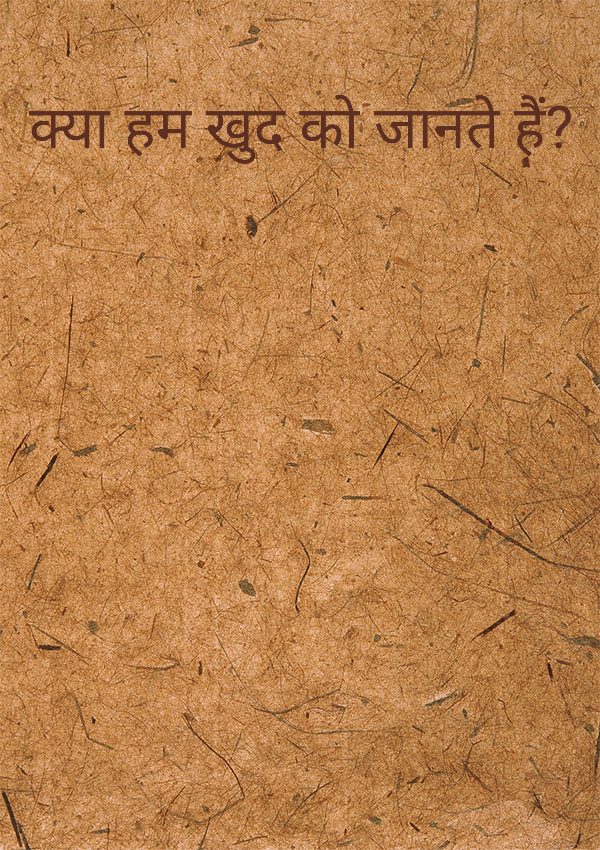 क्या हम खुद को जानते हैं?